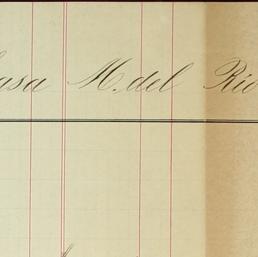 Casa M. del Rio